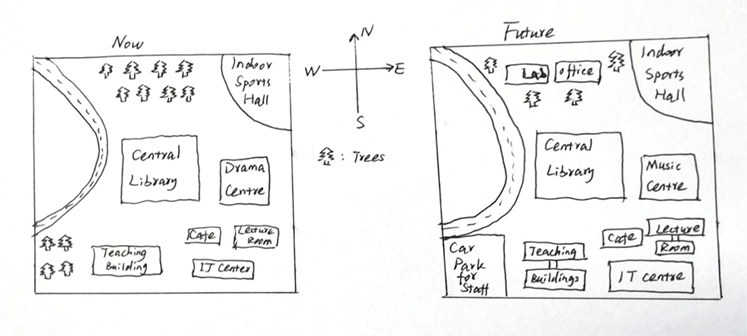 Now
Indoor
Sports
Hall
Central
Library
Drama
Centre
Cafe
Lecture
Room
Teaching
Building
IT Center
N
W
E
S
: Trees
Future
Lab
office
Indoor
Sports
Hall
Central
Library
Music
Centre
Car
Park
for
Staff
Teaching
Buildings
Cafe
Lecture
Room
IT centre